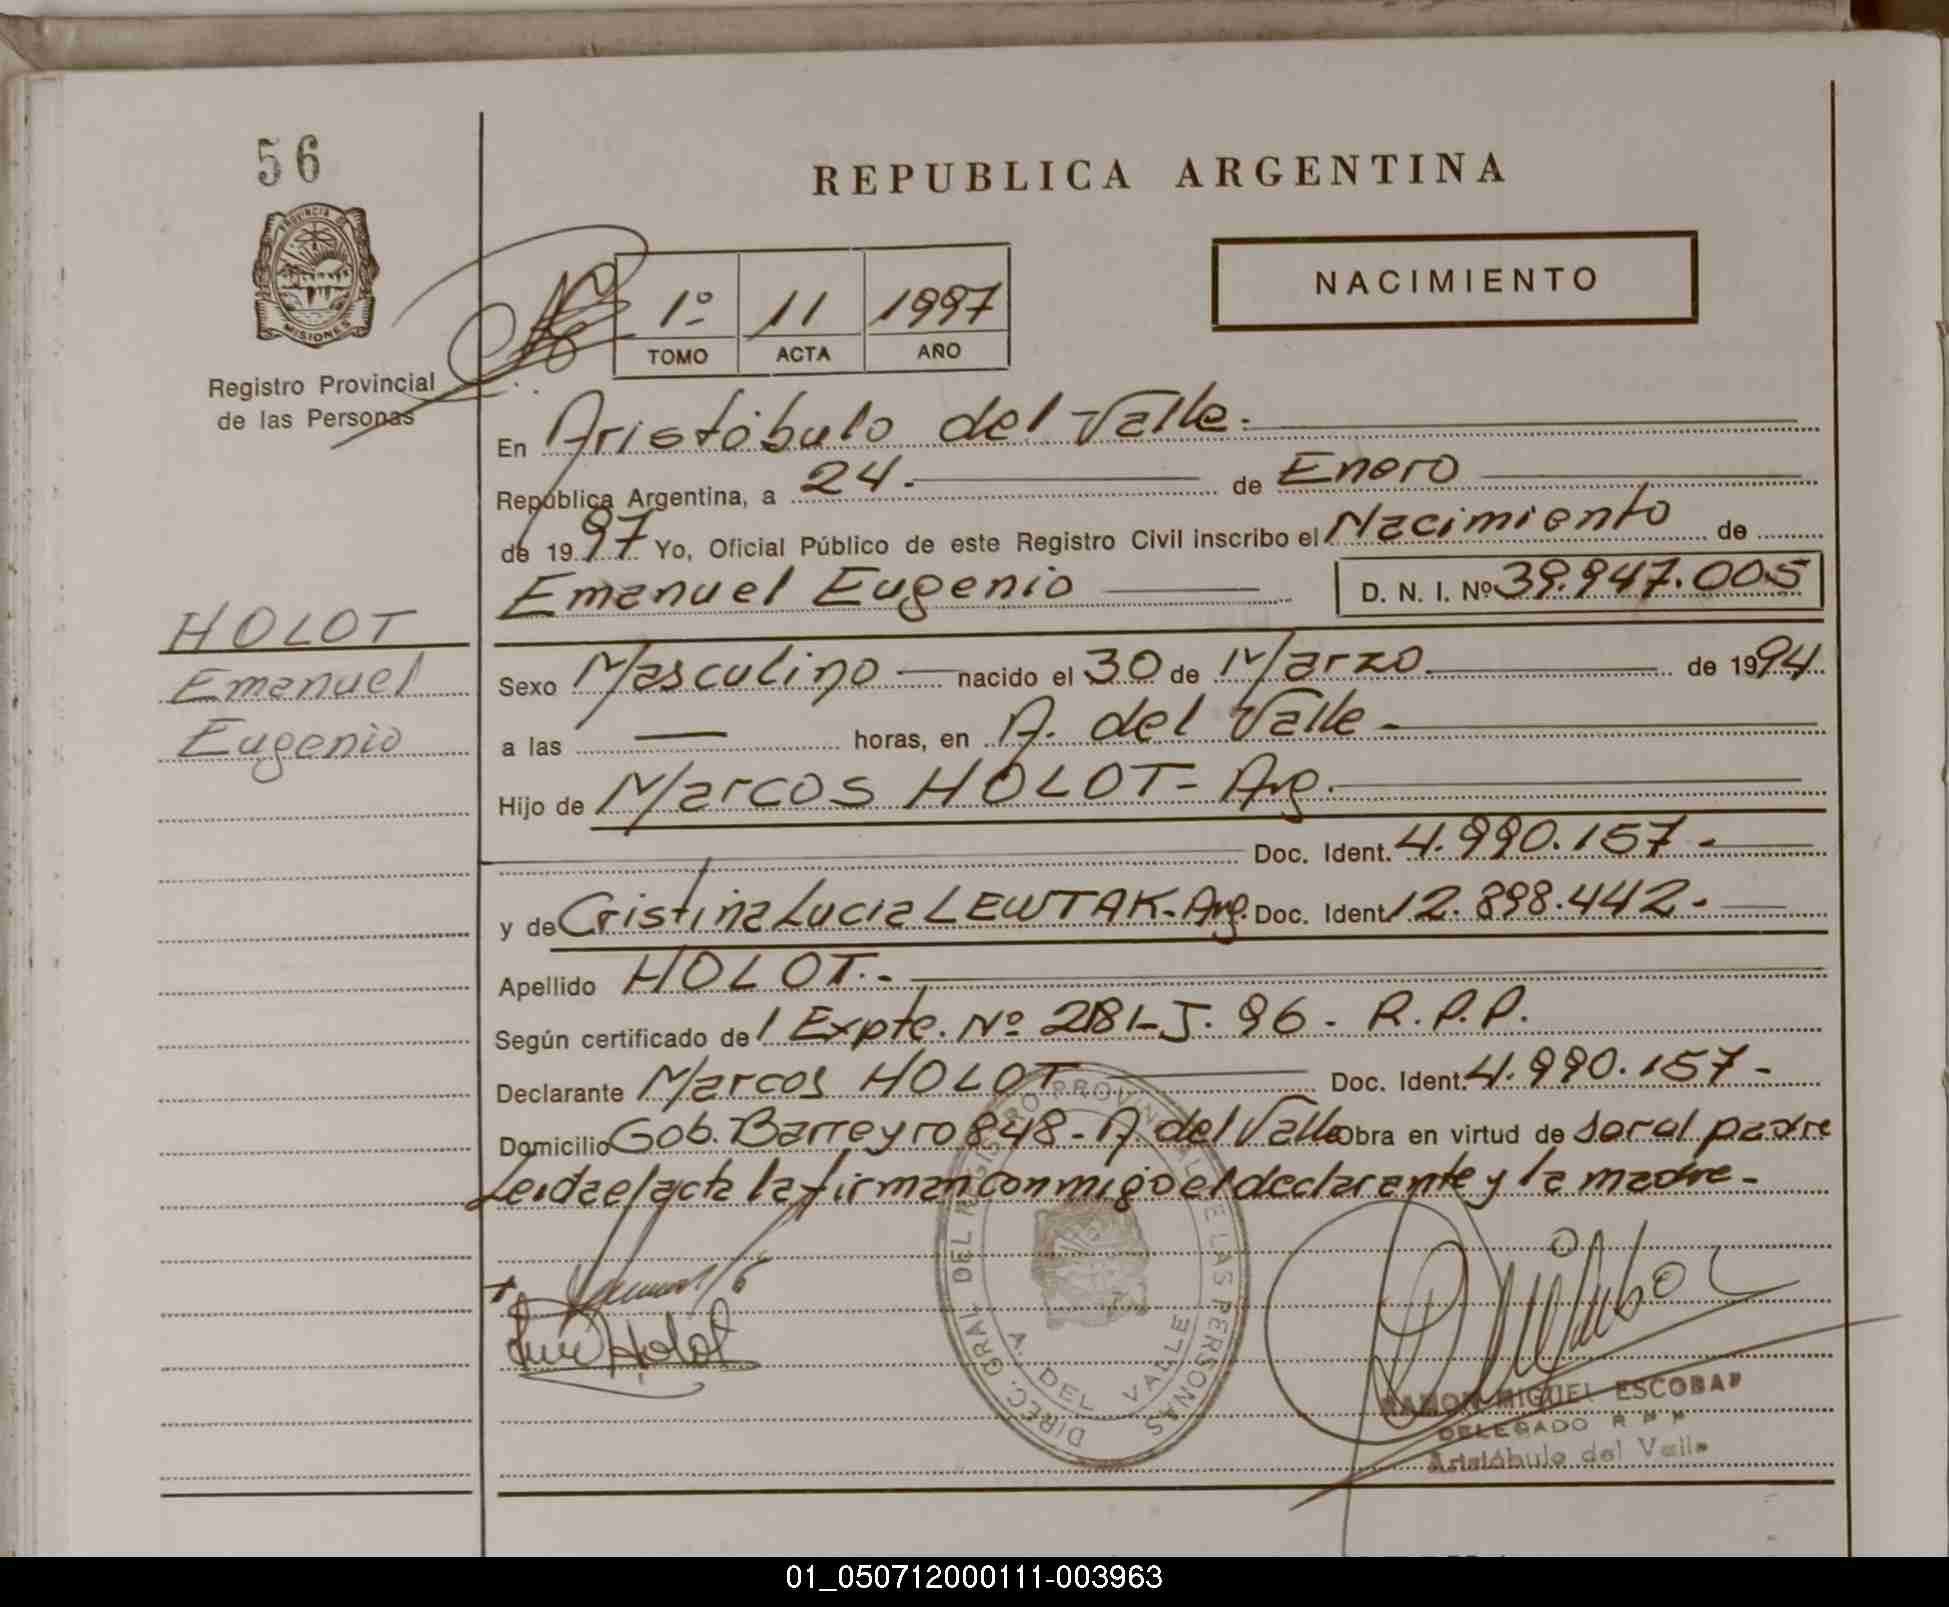 56
REPUBLICA ARGENTINA
PROVINCIA DE
MISIONES
Registro Provincial
de las Personas
1º 11 1997
TOMO ACTA AÑO
NACIMIENTO
En Aristóbulo del Valle.
República Argentina, a 24. de Enero
de 1997 Yo, Oficial Público de este Registro Civil inscribo el Nacimiento de
Emanuel Eugenio D. N. I. Nº 39.947.005
HOLOT
Emanuel
Eugenio
Sexo Masculino nacido el 30 de Marzo de 1994
a las — horas, en A. del Valle -
Hijo de Marcos HOLOT - Arg.
Doc. Ident. 4.990.157 -
y de Cristina Lucia LEWTAK - Arg. Doc. Ident. 12.898.442 -
Apellido HOLOT. -
Según certificado de l Expte. Nº 2181-J. 96 - R.P.P.
Declarante Marcos HOLOT Doc. Ident. 4.990.157 -
Domicilio Gob. Barreyro 848 - A. del Valle Obra en virtud de ser el padre
Leida el acta la firman conmigo el declarante y la madre -
DIREC. GRAL DEL REGISTRO PROVINCIAL DE LAS PERSONAS
A. DEL VALLE
Holot
RAMON MIGUEL ESCOBAR
DELEGADO R P P
Aristóbulo del Valle
01_050712000111-003963